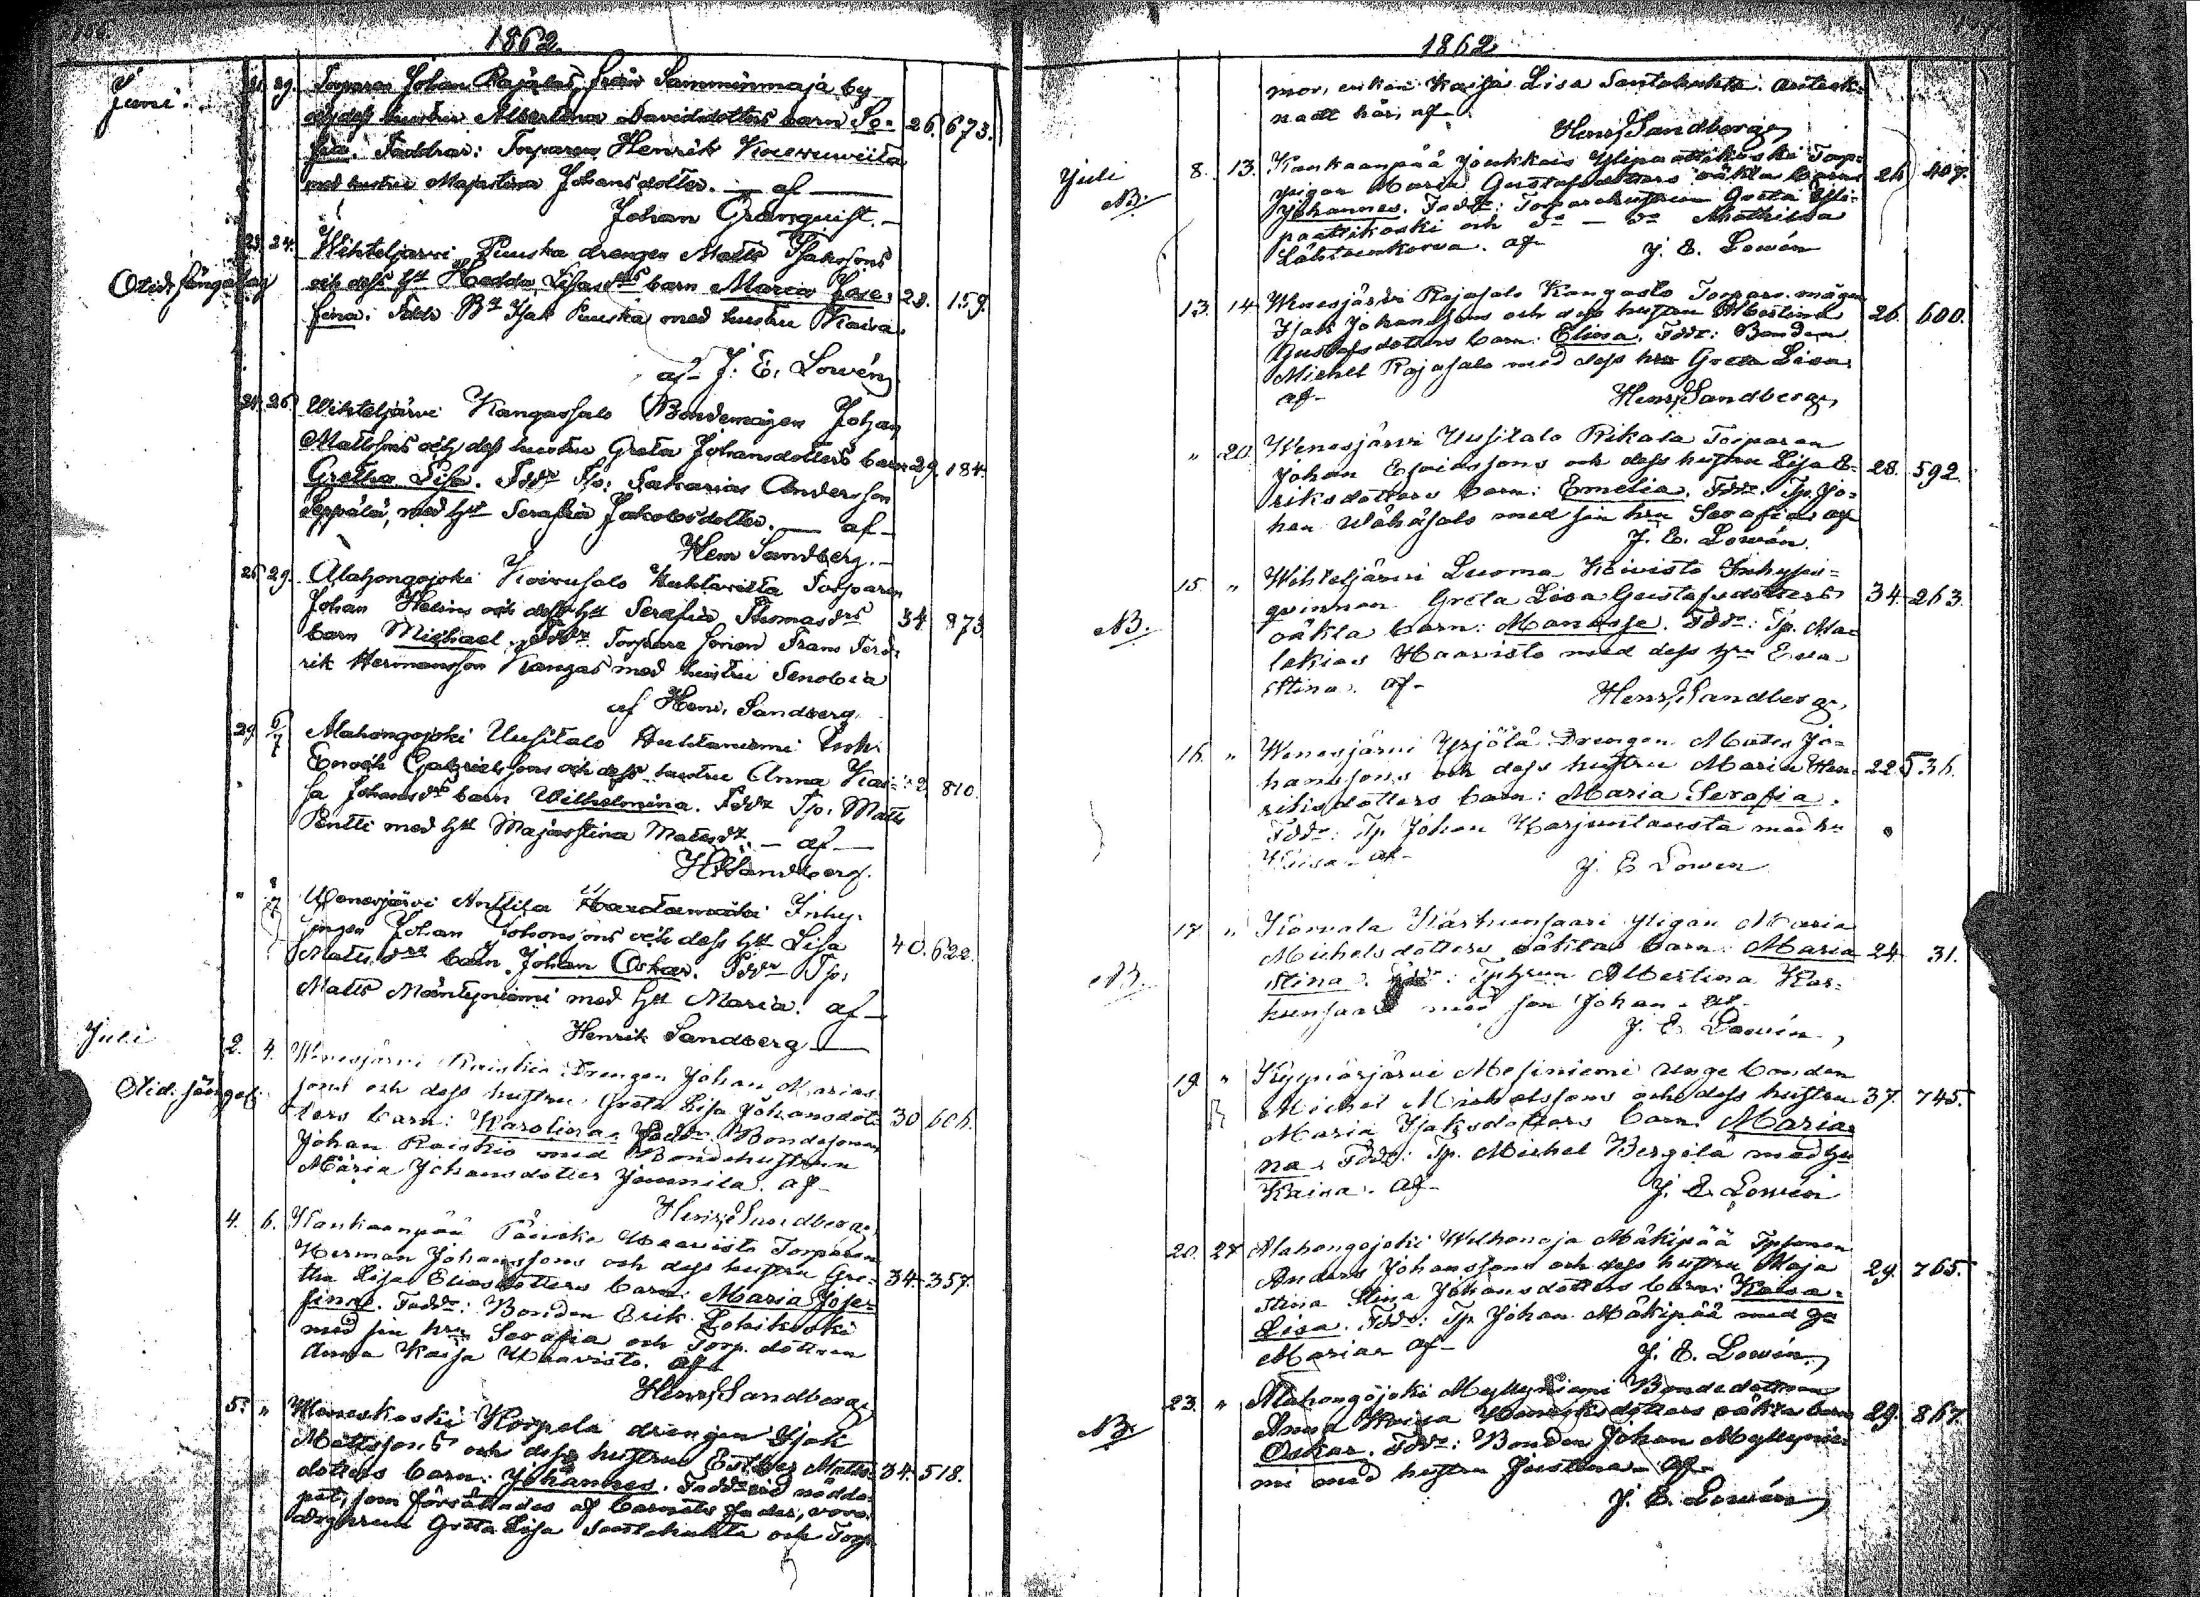 1862.
Juni
21. 29. Torparen Johan Rajalas från Samminmaja by
och dess hustru Albertina Davidsdotters barn So= 26. 673.
fia. Faddrar: Torparen Henrik
med hustru Majastina Johansdotter. — af —
Johan Granquist. —
23. 24. Wihteljärvi Puuska drengen Matts Isakssons
Otid. sängalag
och dess h. Hedda Lisas barn Maria Jose= 28. 159.
fina. Isak Puuska med hustru Kaisa
af J. E. Lowén
24. 26. Wihteljärvi Kangassalo Bondemågen Johan
Mattssons och dess hustru Greta Johansdotters barn 29. 184.
Gretha Lisa. Fddr Tp: Sakarias Andersson
Seppälä, med hu Serafia Jakobsdotter. — af —
Henr Sandberg. —
25. 29. Alahongojoki Koivusalo Huhtaviita Torparen
Johan Helins och dess hu Serafia Thomasdrs 34. 873.
barn Michael. Fddr Torpare sonen Frans Fred=
rik Hermansson Kangas med hustru Senobia
af Henr. Sandberg.
29. 6/7 Alahongojoki Uusitalo Huhtaniemi Inh.
Enoch Gabrielssons och dess hustru Anna Kai= 810.
sa Johansdrs barn Wilhelmina. Fddr Tp. Matts
Pentti med hu Majastina Matsdr. — af —
H Sandberg.
" Wenesjärvi Anttila Inhy-
singen Johan Johanssons och dess hu Lisa 40. 622.
Mattsdrs barn Johan Oskar. Fddr Tp.
Matts Mäntyniemi med hu Maria. af —
Henrik Sandberg —
Juli
2. 4. Wenesjärvi Raiskio Drengen Johan Marias
Otid. sängal.
sons och dess hustru Greta Lisa Johansdot= 30 606.
ters barn: Karolina. Faddr: Bondesonen
Johan Raiskio med Bondehustrun
Maria Johansdotter Juunila. af
Henr. Sandberg
4. 6. Kankaanpää Päivike Haavisto Torparen
Herman Johanssons och dess hustru Gre= 34. 357.
tha Lisa Eliasdotters barn: Maria Jose=
fina. Faddr: Bonden Erik Lohikoski
med sin hru Serafia och Torp. dottren
Anna Kaisa Haavisto. af
Henr Sandberg
5. " Honkoski Korpela drengen Isak
Mattssons och dess hustru Esther Matts= 34. 518.
dotters barn: Johannes. Faddr vid nöddo=
pet, som förrättades af barnets fader, voro
Greta Lisa Santahuhta och Torp
1862.
mor, enkan Kaisa Lisa Santahuhta. Anteck=
nadt här, af
Henr Sandberg
Juli 8. 13. Kankaanpää Joukkais Ylipaattikoski Torp= 26 407.
NB. pigan Maria Gustafsdotters oäkta barn
Johannes. Faddr: Torparehustrun Greta Yli=
paattikoski och Do — Do Mathilda
Lähteenkorva. af J. E. Lowén
13. 14. Wenesjärvi Rajasalo Kangasto Torpare-mågen 26. 600.
Isak Johanssons och dess hustru Albertina
Gustafsdotters barn: Elissa. Fddr: Bonden
Michel Rajasalo med dess hru Greta Lisa.
af Henr Sandberg
" 20. Wenesjärvi Uusitalo Rikala Torparen
Johan Esaiassons och dess hustru Lisa E= 28. 592.
riksdotters barn: Emelia. Fddr. Tp. Jo=
han Wähäsalo med sin hru Serafia. af
J. E. Lowén.
15. " Wihteljärvi Luoma Koivisto Inhyses=
qvinnan Greta Lisa Gustafsdotters 34. 263.
NB. oäkta barn: Manasse. Fddr: Tp. Ma=
lakias Haavisto med dess hru Eva
Stina. af Henr Sandberg.
16. " Wenesjärvi Yrjölä Drengen Matts Jo=
hanssons och dess hustru Maria Hen= 22. 536.
riksdotters barn: Maria Serafia.
Fddr: Tp Johan Harjuntausta med hu
Kaisa. af J. E Lowen
17 " Korvala Karhunsaari Pigan Maria
Michelsdotters oäkta barn: Maria 24 31.
NB. Stina. Fddr: Tphrun Albertina Kar=
hunsaari med son Johan. af
J. E. Lowén.
19. " Kyynärjärvi Mesiniemi unge bonden
Michel Michelssons och dess hustru 37. 745.
Maria Isaksdotters barn: Maria=
na. Fddr: Tp. Michel Bergilä med hu
Kaisa. af J. E. Lowén
20. 27 Alahongojoki Welhonoja Mäkipää Tpsonen
Anders Johanssons och dess hustru Maja 29. 765.
Stina Stina Johansdotters barn: Kaisa=
Lisa. Fddr: Tp Johan Mäkipää med hu
Maria. af J. E. Lowén.
23. " Alahongojoki Myllyniemi Bondedottren
NB. Anna Kaisa Henriksdotters oäkta barn 29. 867.
Oskar. Fddr: Bonden Johan Myllynie=
mi med hustru Justina. af
J. E. Lowén